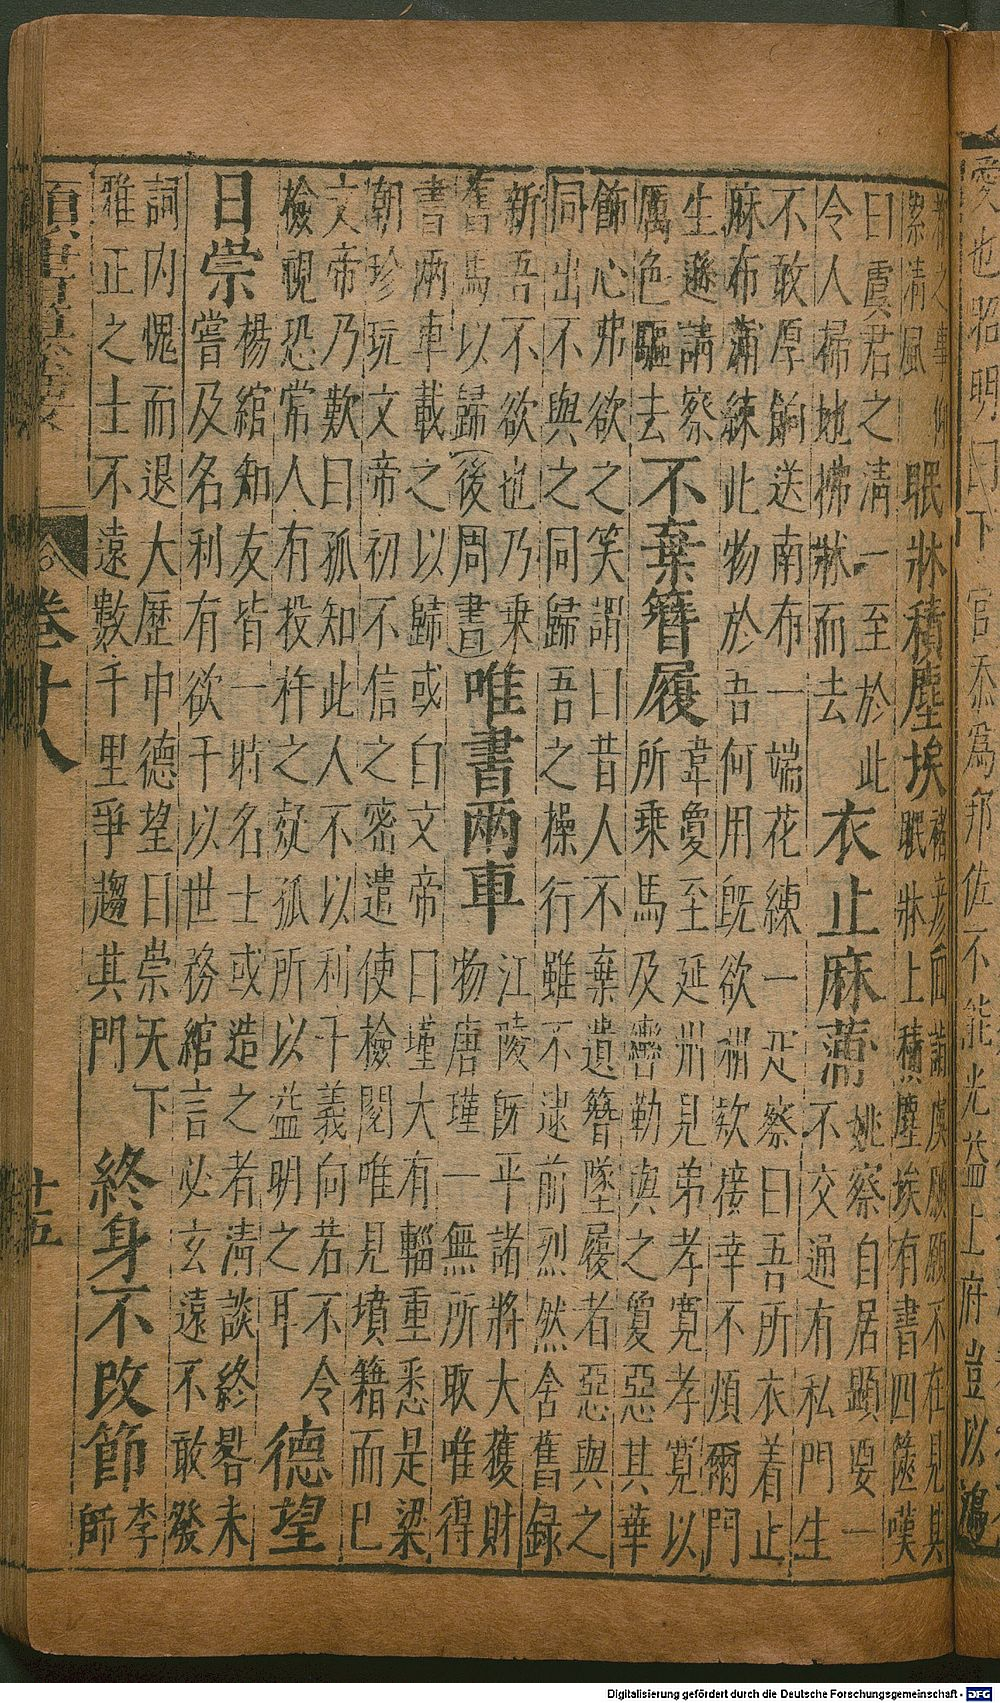 愛也昭明曰下官忝為邦佐不能光益上府豈以鴻
之事仰
潔清風
眠牀積塵埃
褚彥回謝虞愿愿不在見其
眠牀上積塵埃有書四篋嘆
曰虞君之清一至於此
令人掃地拂牀而去
衣止麻蒲
姚察自居顯要一
不交通有私門生
不敢厚餉送南布一端花練一疋察曰吾所衣着止
麻布蒲練此物於吾何用旣欲相欵接幸不煩爾門
生遜請察
厲色驅去
不棄簪履
韋敻至延州見弟孝寬孝寬以
所乘馬及轡勒與之敻惡其華
飾心弗欲之笑謂曰昔人不棄遺簪墜履者惡與之
同出不與之同歸吾之操行雖不逮前烈然舍舊錄
新吾不欲也乃乘
舊馬以歸(後周書)
唯書兩車
江陵旣平諸將大獲財
物唐瑾一無所取唯得
書兩車載之以歸或白文帝曰瑾大有輜重悉是梁
朝珍玩文帝初不信之密遣使檢閱唯見墳籍而已
文帝乃歎曰孤知此人不以利干義向若不令
檢視恐常人有投杼之疑孤所以益明之耳
德望
日崇
楊綰知友皆一時名士或造之者清談終晷未
嘗及名利有欲干以世務綰言必玄遠不敢發
詞內愧而退大歷中德望日崇天下
雅正之士不遠數千里爭趨其門
終身不改節
李
師
卷十八
十五
Digitalisierung gefördert durch die Deutsche Forschungsgemeinschaft - DFG